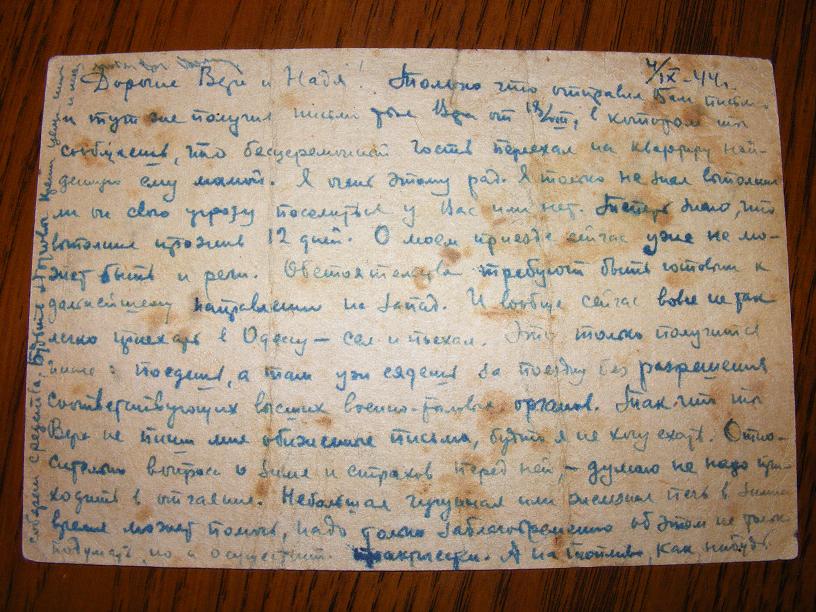 4/IX-44г.
Дорогие Вера и Надя! Только что отправил Вам письмо
и тут же получил письмо от 18/VIII, в котором ты
сообщаешь, что бесцеремонный гость переехал на квартиру най-
денную ему мамой. Я очень этому рад. Я только не знал выполнил
ли он свою угрозу поселиться у Вас или нет. Теперь знаю, что
выполнил прожив 12 дней. О моем приезде сейчас уже не мо-
жет быть и речи. Обстоятельства требуют быть готовым к
дальнейшему направлению на Запад. И вообще сейчас вовсе не так
легко приехать в Одессу — сел и поехал. Это только получится
поедешь, а там уж сядешь за поездку без разрешения
соответствующих высших военно- органов. Так что ты
Вера не пиши мне обиженные письма, будто я не хочу ехать. Отно-
сительно вопроса о зиме и страхов перед ней, — думаю не надо при-
ходить в отчаяние. Небольшая чугунная или железная печь в зимнее
время может помочь, надо только заблаговременно об этом не только
подумать, но и осуществить практически. А на топливо, как нибудь